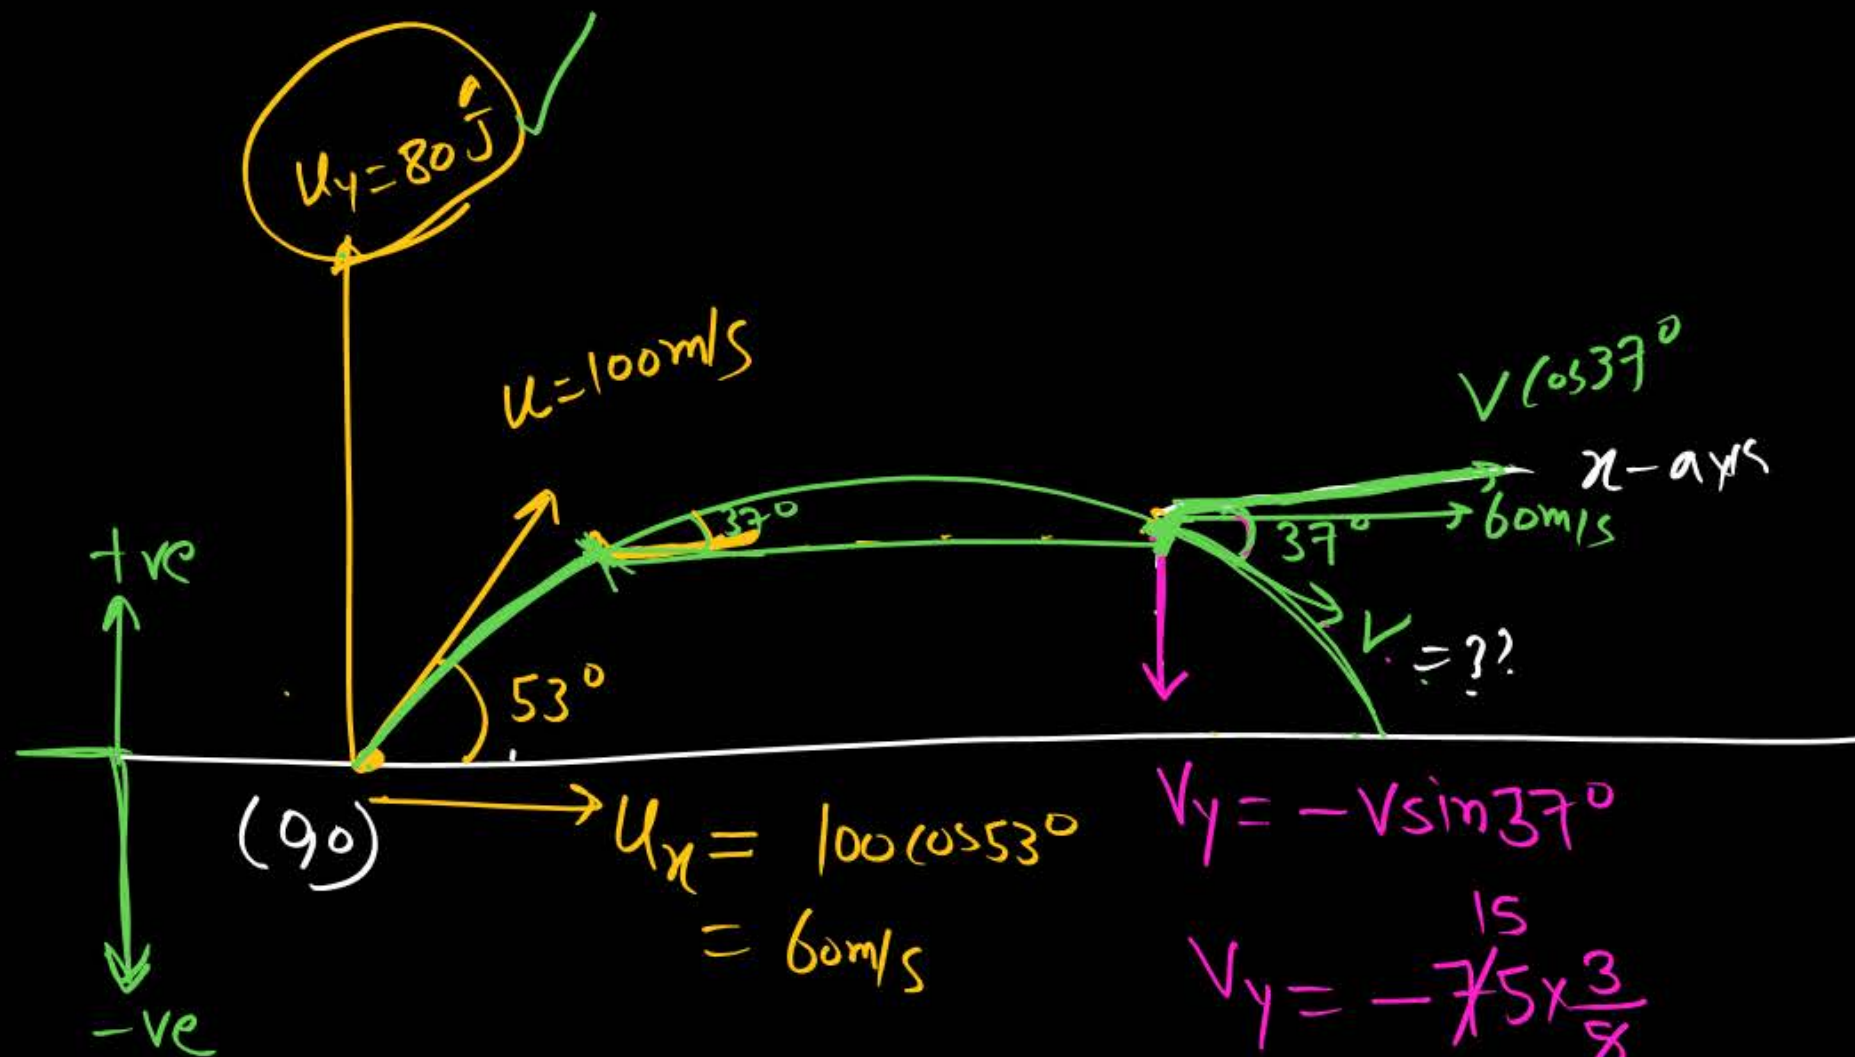 uy=80ĵ
u=100m/s
Vcos37°
x-axis
37°
60m/s
37°
+ve
V
=??
53°
(90)
ux= 100cos53°
= 60m/s
Vy= -Vsin37°
15
Vy= -75×3/5
-ve